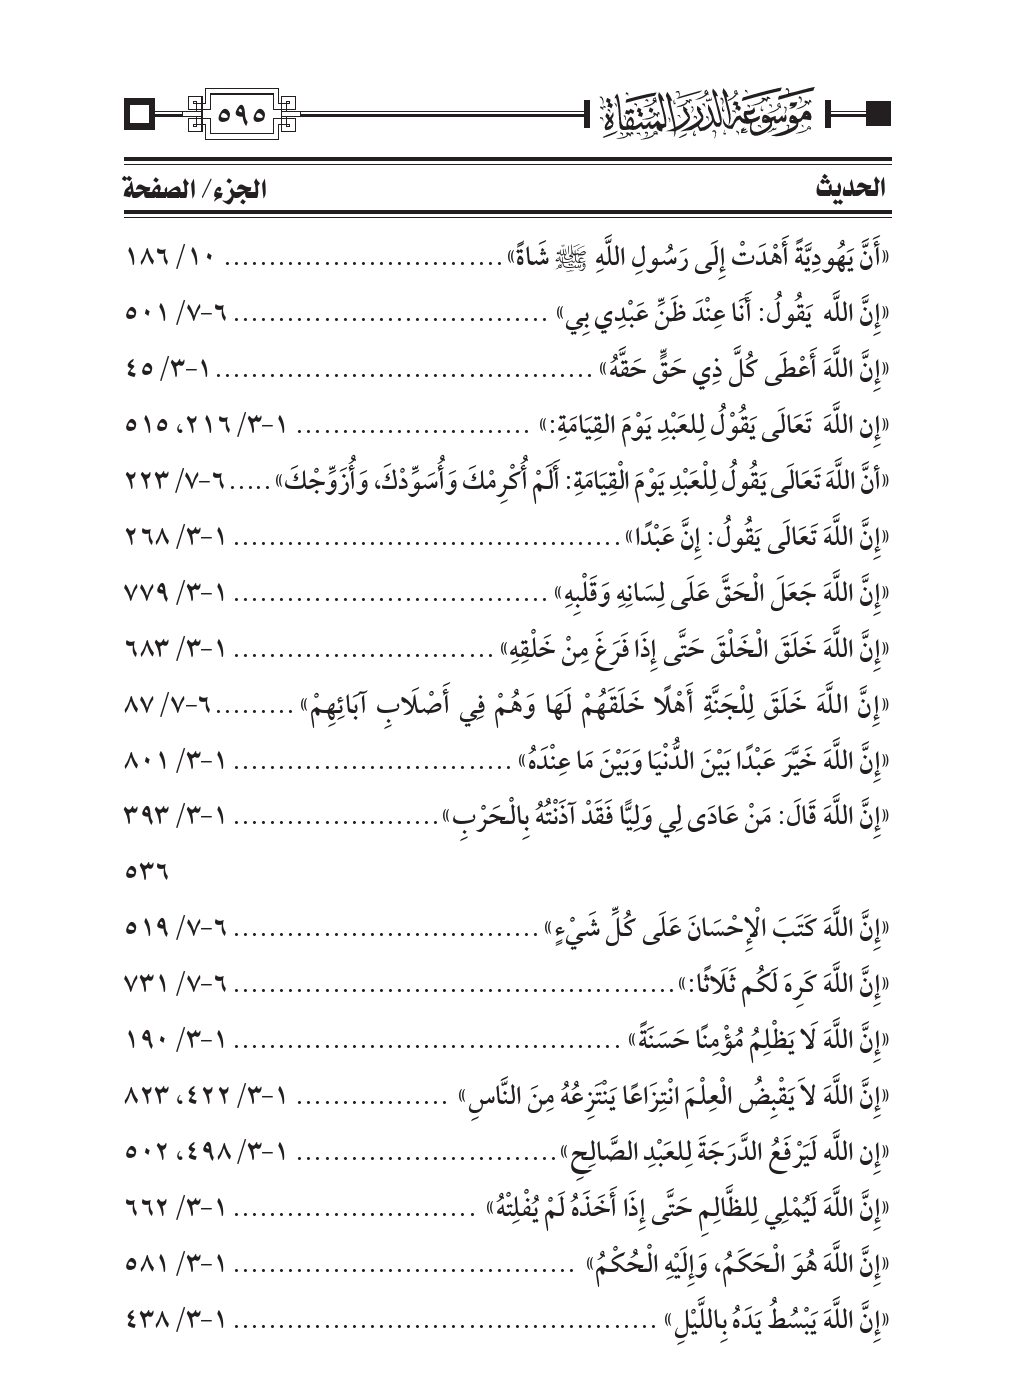 موسوعة الدرر المنتقاة ٥٩٥
الحديث الجزء/ الصفحة
«أَنَّ يَهُودِيَّةً أَهْدَتْ إِلَى رَسُولِ اللَّهِ ﷺ شَاةً» ............................... ١٠/ ١٨٦
«إِنَّ اللَّه يَقُولُ: أَنَا عِنْدَ ظَنِّ عَبْدِي بِي» ................................... ٦-٧/ ٥٠١
«إِنَّ اللَّهَ أَعْطَى كُلَّ ذِي حَقٍّ حَقَّهُ» .......................................... ١-٣/ ٤٥
«إِن اللَّهَ تَعَالَى يَقُوْلُ لِلعَبْدِ يَوْمَ القِيَامَةِ:» .......................... ١-٣/ ٢١٦، ٥١٥
«أنَّ اللَّهَ تَعَالَى يَقُولُ لِلْعَبْدِ يَوْمَ الْقِيَامَةِ: أَلَمْ أُكْرِمْكَ وَأُسَوِّدْكَ، وَأُزَوِّجْكَ» ..... ٦-٧/ ٢٢٣
«إِنَّ اللَّهَ تَعَالَى يَقُولُ: إِنَّ عَبْدًا» ........................................... ١-٣/ ٢٦٨
«إِنَّ اللَّهَ جَعَلَ الْحَقَّ عَلَى لِسَانِهِ وَقَلْبِهِ» ................................... ١-٣/ ٧٧٩
«إِنَّ اللَّهَ خَلَقَ الْخَلْقَ حَتَّى إِذَا فَرَغَ مِنْ خَلْقِهِ» ............................. ١-٣/ ٦٨٣
«إِنَّ اللَّهَ خَلَقَ لِلْجَنَّةِ أَهْلًا خَلَقَهُمْ لَهَا وَهُمْ فِي أَصْلَابِ آبَائِهِمْ» ......... ٦-٧/ ٨٧
«إِنَّ اللَّهَ خَيَّرَ عَبْدًا بَيْنَ الدُّنْيَا وَبَيْنَ مَا عِنْدَهُ» ............................... ١-٣/ ٨٠١
«إِنَّ اللَّهَ قَالَ: مَنْ عَادَى لِي وَلِيًّا فَقَدْ آذَنْتُهُ بِالْحَرْبِ» ....................... ١-٣/ ٣٩٣
٥٣٦
«إِنَّ اللَّهَ كَتَبَ الْإِحْسَانَ عَلَى كُلِّ شَيْءٍ» .................................. ٦-٧/ ٥١٩
«إِنَّ اللَّهَ كَرِهَ لَكُم ثَلَاثًا:» ................................................. ٦-٧/ ٧٣١
«إِنَّ اللَّهَ لَا يَظْلِمُ مُؤْمِنًا حَسَنَةً» ........................................... ١-٣/ ١٩٠
«إِنَّ اللَّهَ لاَ يَقْبِضُ الْعِلْمَ انْتِزَاعًا يَنْتَزِعُهُ مِنَ النَّاسِ» ................. ١-٣/ ٤٢٢، ٨٢٣
«إِن اللَّه لَيَرْفَعُ الدَّرَجَةَ لِلعَبْدِ الصَّالِحِ» ............................. ١-٣/ ٤٩٨، ٥٠٢
«إِنَّ اللَّهَ لَيُمْلِي لِلظَّالِمِ حَتَّى إِذَا أَخَذَهُ لَمْ يُفْلِتْهُ» ........................... ١-٣/ ٦٦٢
«إِنَّ اللَّهَ هُوَ الْحَكَمُ، وَإِلَيْهِ الْحُكْمُ» ...................................... ١-٣/ ٥٨١
«إِنَّ اللَّهَ يَبْسُطُ يَدَهُ بِاللَّيْلِ» ............................................... ١-٣/ ٤٣٨